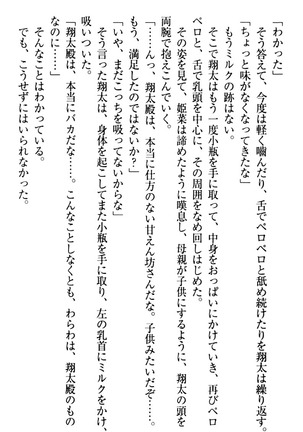 「わかった」
そう答えて、今度は軽く嚙んだり、舌でペロペロと舐め続けたりを翔太は繰り返す。
「ちょっと味がなくなってきたな」
もうミルクの跡はない。
そこで翔太はもう一度小瓶を手に取って、中身をおっぱいにかけていき、再びペロ
ペロと、舌で乳頭を中心に、その周囲をなめ回しはじめた。
その姿を見て、姫菜は諦めたように嘆息し、母親が子供にするように、翔太の頭を
両腕で抱えこんでいく。
「……んっ、翔太殿は、本当に仕方のない甘えん坊さんだな。子供みたいだぞ……。
か、満足したのではないか？」
「いや、まだこっちを吸ってないからな」
そう言った翔太は、身体を起こしてまた小瓶を手に取り、左の乳首にミルクをかけ、
吸いついた。
「翔太殿は、本当にバカだな……。こんなことしなくとも、わらわは、翔太殿のもの
なのに……」
そんなことはわかっている。
でも、こうせずにはいられなかった。